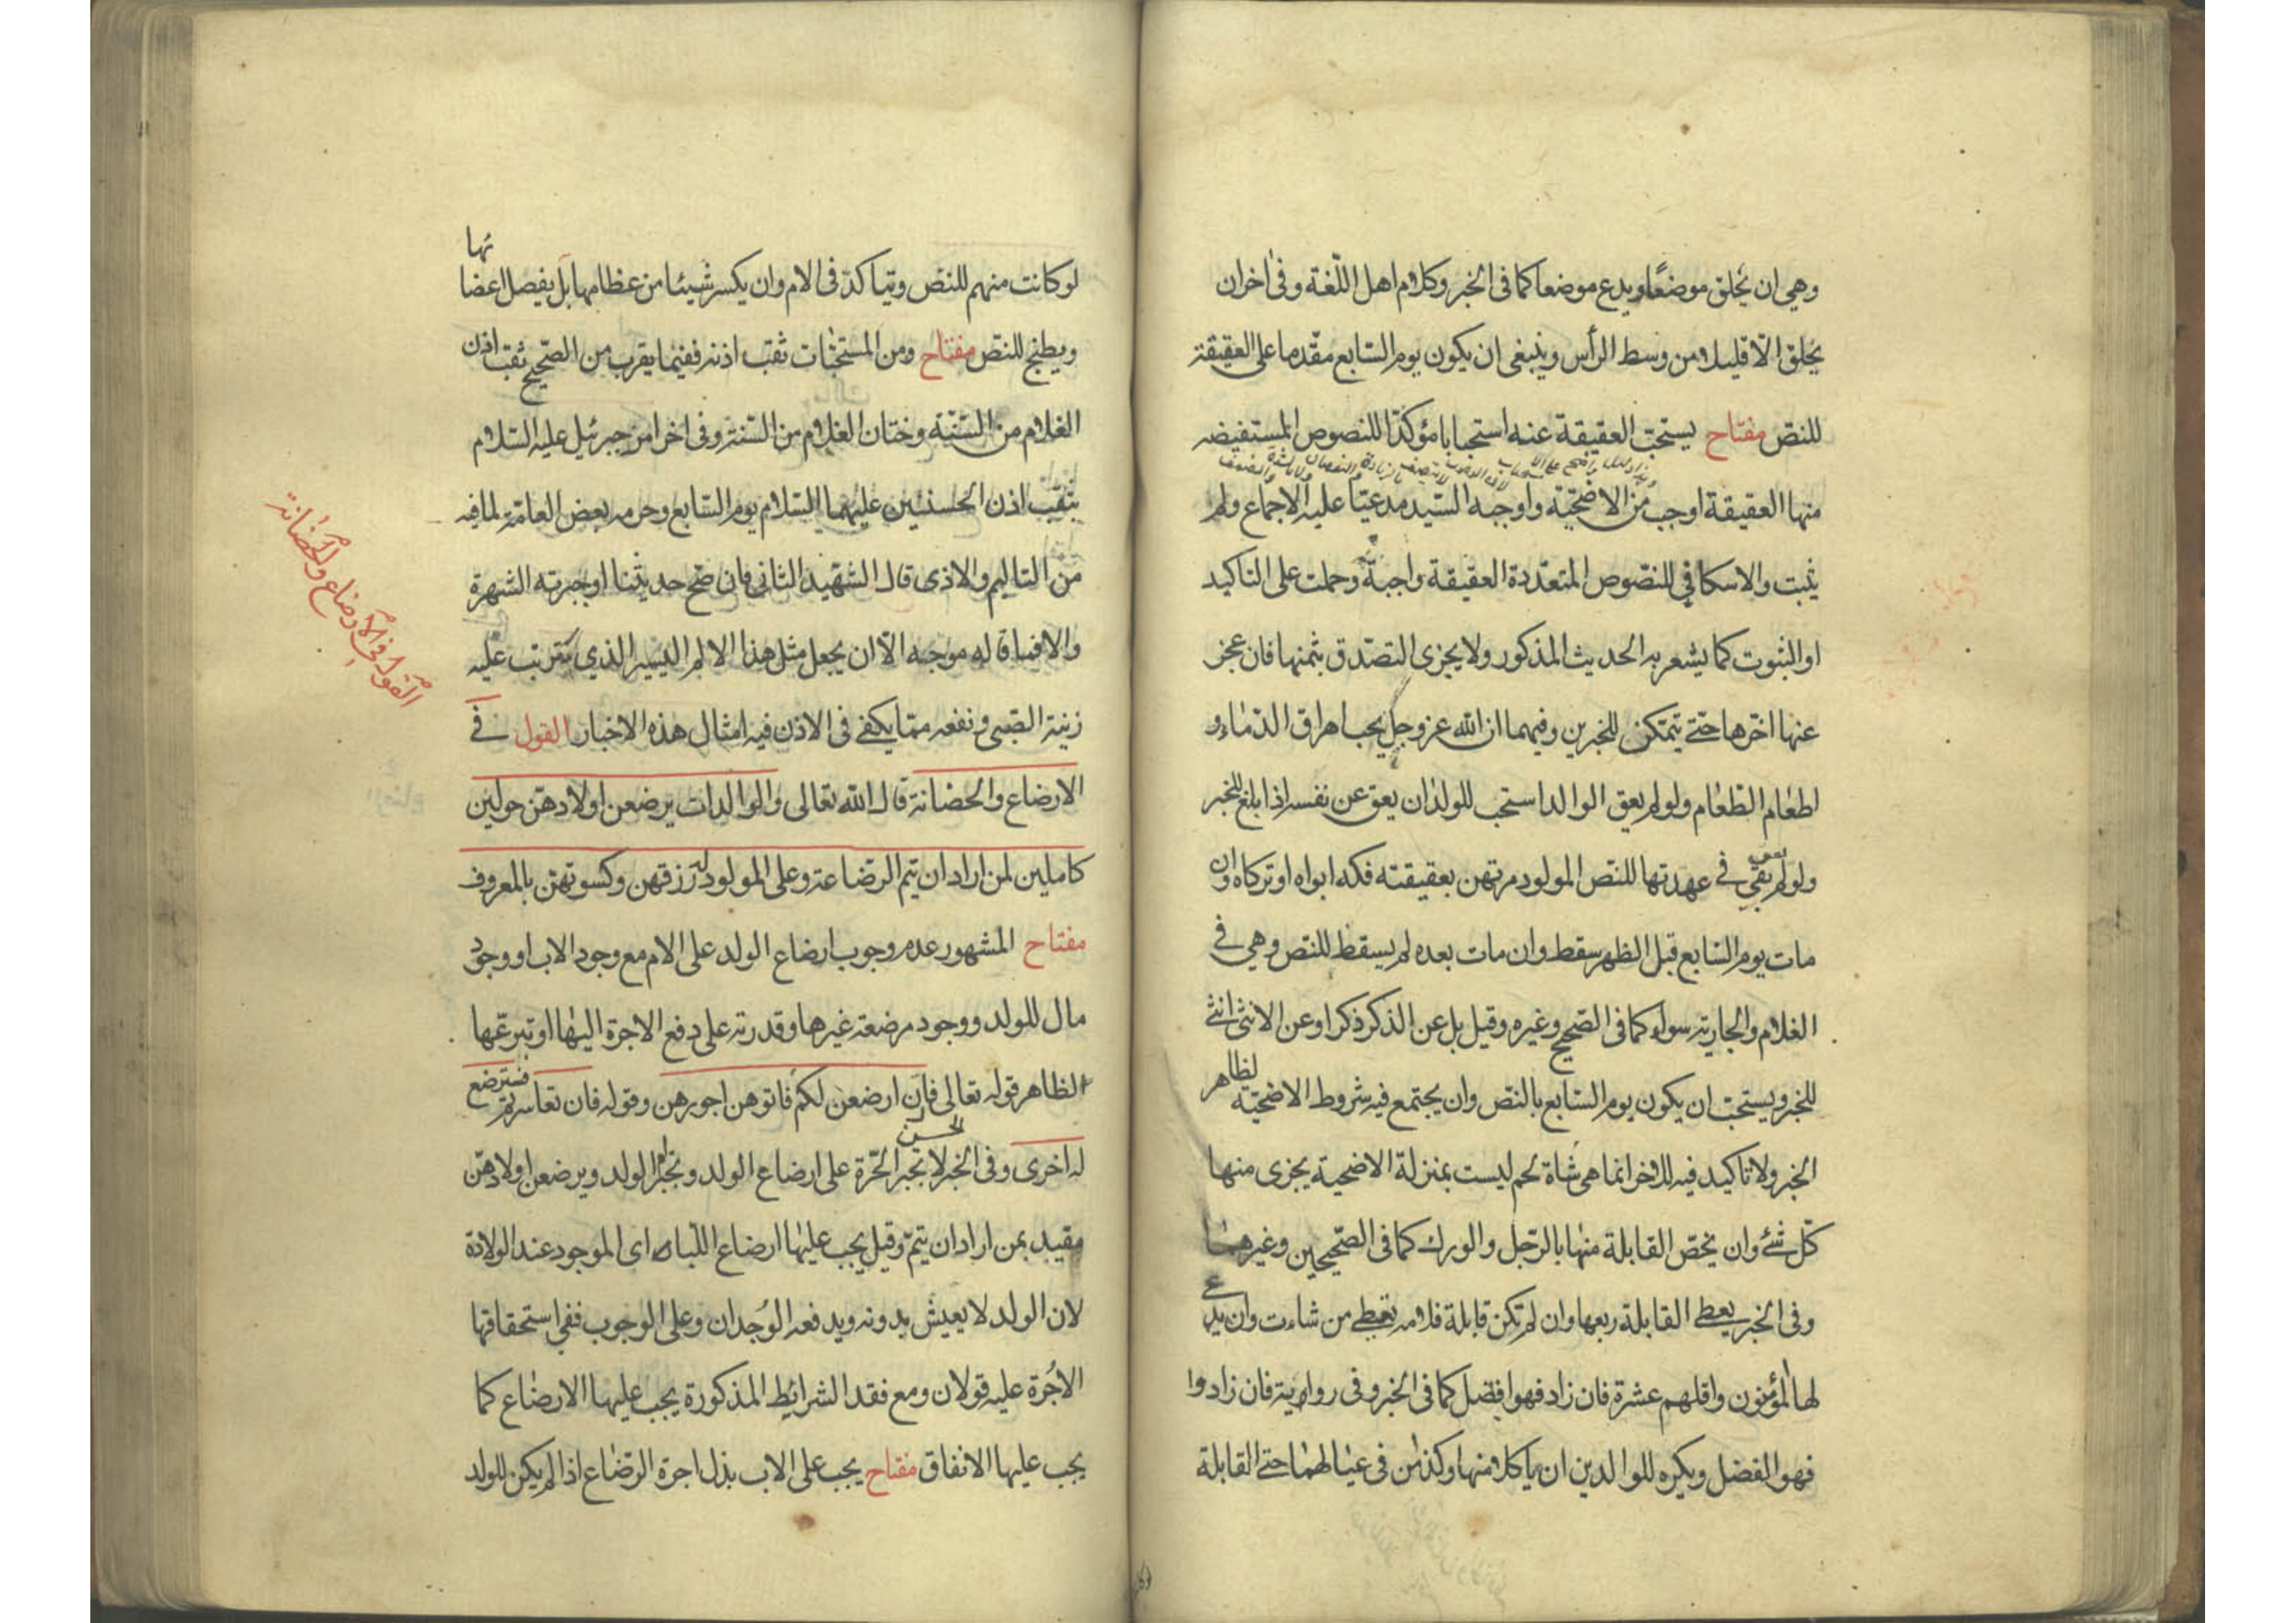 وهي ان يحلق موضعًا ويدع موضعا كما في الخبر وكلام اهل اللّغة وفي اخران
يحلق الّا قليلا من وسط الرأس وينبغي ان يكون يوم السّابع مقدّما على العقيقة
للنصّ مفتاح يستحبّ العقيقة عنه استحبابا مؤكدّا للنصوص المستفيضه
منها العقيقة اوجب من الاضحيّة واوجبه السّيد مدعيّا عليه الاجماع ولم
يثبت والاسكافي للنصّوص المتعدّدة العقيقة واجبة وحملت على التاكيد
او الثبوت كما يشعر به الحديث المذكور ولا يجزي التصدّق بثمنها فان عجز
عنها اخّرها حتّى يتمكن للخبرين وفيهما ان الله عز وجل يحب اهراق الدّماء و
اطعام الطّعام ولو لم يعق الوالد استحب للولد ان يعق عن نفسه اذا بلغ للخبر
ولو لم يعق بقي في عهدتها للنصّ المولود مرتهن بعقيقته فكه ابواه او تركاه وان
مات يوم السّابع قبل الظهر سقط وان مات بعده لم يسقط للنصّ وهي في
الغلام والجارية سواء كما في الصّحيح وغيره وقيل بل عن الذكر ذكرا وعن الانثى انثى
للخبر ويستحبّ ان يكون يوم السّابع بالنصّ وان يجتمع فيه شروط الاضحيّة لظاهر
الخبر ولا تاكيد فيه للاخر انما هي شاة لحم ليست بمنزلة الاضحية يجزى منها
كلّ شئ وان يخصّ القابلة منها بالرّجل والورك كما في الصّحيحين وغيرهما
وفي الخبر يعطى القابلة ربعها وان لم تكن قابلة فلامه تعطي من شاءت وان يدع
لها المؤمنون واقلهم عشرة فان زاد فهو افضل كما في الخبر وفي رواية فان زادوا
فهو الفضل ويكره للوالدين ان ياكلا منها وكذا من في عيالهما حتى القابلة
لوكا
لو كانت منهم للنصّ ويتاكدّ في الام وان يكسر شيئا من عظامها بل يفصل اعضائها
ويطبخ للنصّ مفتاح ومن المستحبّات ثقب اذنه ففيما يقرب من الصّحيح ثقب اذن
الغلام من السّنّة وختان الغلام من السّنة وفي اخر امر جبرئيل عليه السّلام
بثقب اذن الحسنين عليهما السّلام يوم السّابع وحرمه بعض العامّة لما فيه
من التاليم والاذى قال الشهيد الثاني فان صحّ حديثنا او جبرته الشهرة
والا فما قاله موجه الّا ان يجعل مثل هذا الالم اليسير الذي يترتب عليه
زينة الصّبي ونفعه ممّا يكفي في الاذن فيه امثال هذه الاخبار القول في
الارضاع والحضانة قال الله تعالى والوالدات يرضعن اولادهنّ حولين
كاملين لمن اراد ان يتم الرضاعة وعلى المولود له رزقهن وكسوتهنّ بالمعروف
مفتاح المشهور عدم وجوب ارضاع الولد على الام مع وجود الاب او وجود
مال للولد ووجود مرضعة غيرها وقدرته على دفع الاجرة اليها او تبرعّها
لظاهر قوله تعالى فان ارضعن لكم فاتوهن اجورهن وقوله فان تعاسرتم فسترضع
له اخرى وفي الخبر لا تجبر الحّرة على ارضاع الولد وتجبر ام الولد ويرضعن اولادهنّ
مقيد بمن اراد ان يتمّ وقيل يجب عليها ارضاع اللّباء اى الموجود عند الولادة
لان الولد لا يعيش بدونه ويدفعه الوجدان وعلى الوجوب ففي استحقاقها
الاجُرة عليه قولان ومع فقد الشرائط المذكورة يجب عليها الارضاع كما
يجب عليها الانفاق مفتاح يجب على الاب بذل اجرة الرّضاع اذا لم يكن للولد
القول في الارضاع والحضانة